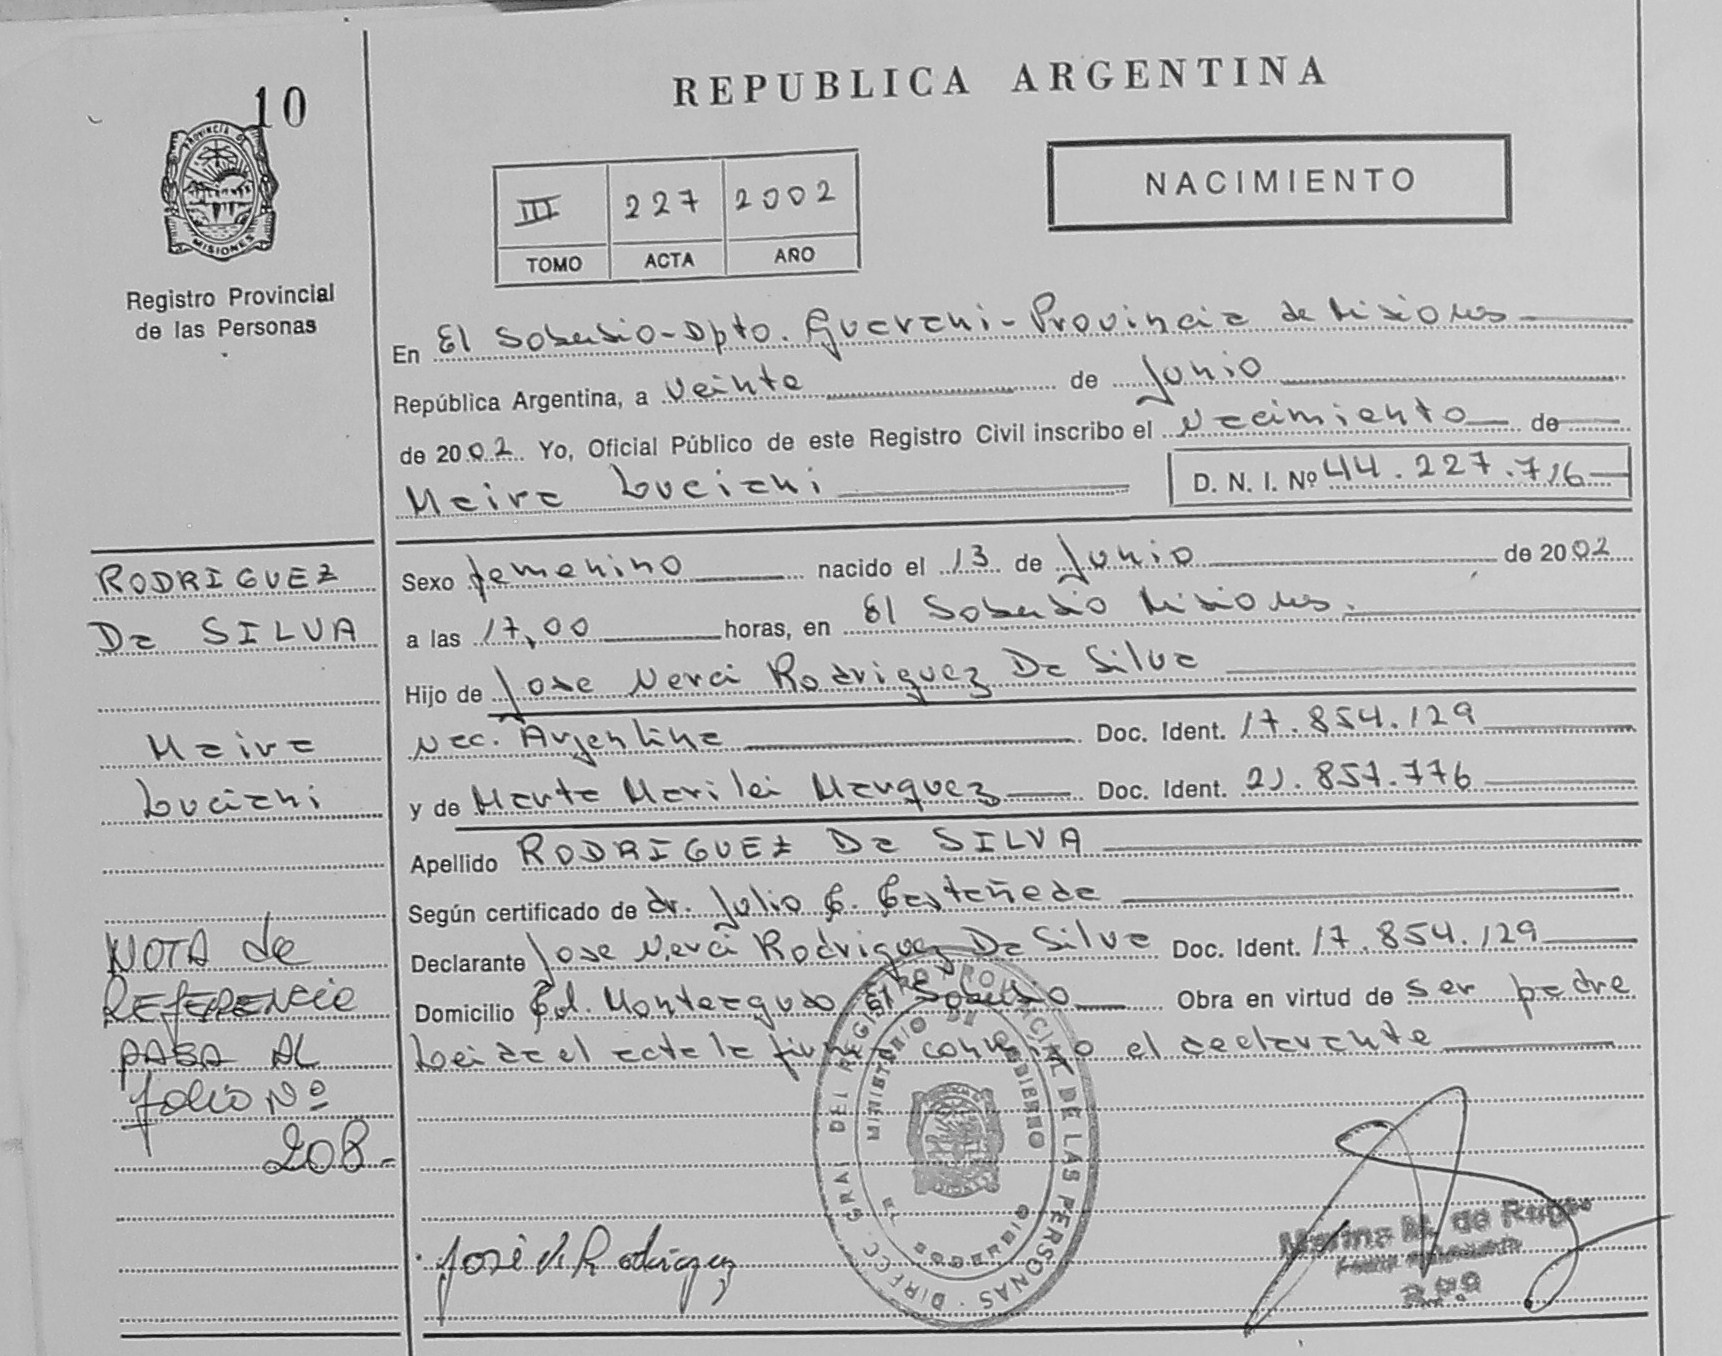 10
PROVINCIA DE
MISIONES
Registro Provincial
de las Personas
REPUBLICA ARGENTINA
III 227 2002
TOMO ACTA AÑO
NACIMIENTO
En El Soberbio - Dpto. Guarani - Provincia de Misiones
República Argentina, a veinte de Junio
de 2002 Yo, Oficial Público de este Registro Civil inscribo el nacimiento de
Maira Luciani D. N. I. Nº 44.227.716
Sexo femenino nacido el 13 de Junio de 2002
a las 17,00 horas, en El Soberbio Misiones.
Hijo de Jose Nerci Rodriguez Da Silva
Nac. Argentina Doc. Ident. 17.854.129
y de Marta Marilei Marquez Doc. Ident. 21.857.776
Apellido RODRIGUEZ Da SILVA
Según certificado de dr. Julio C. Castañeda
Declarante Jose Nerci Rodriguez Da Silva Doc. Ident. 17.854.129
Domicilio Col. Monteagudo El Soberbio Obra en virtud de ser padre
Leida el acta la firma conmigo el declarante
RODRIGUEZ
Da SILVA
Maira
Luciani
NOTA de
REFERENCIA
PASA AL
folio Nº
208-
José N. Rodriguez
DIRECC. GRAL DEL REGISTRO PROVINCIAL DE LAS PERSONAS
MINISTERIO DE GOBIERNO
EL SOBERBIO
Marina M. de